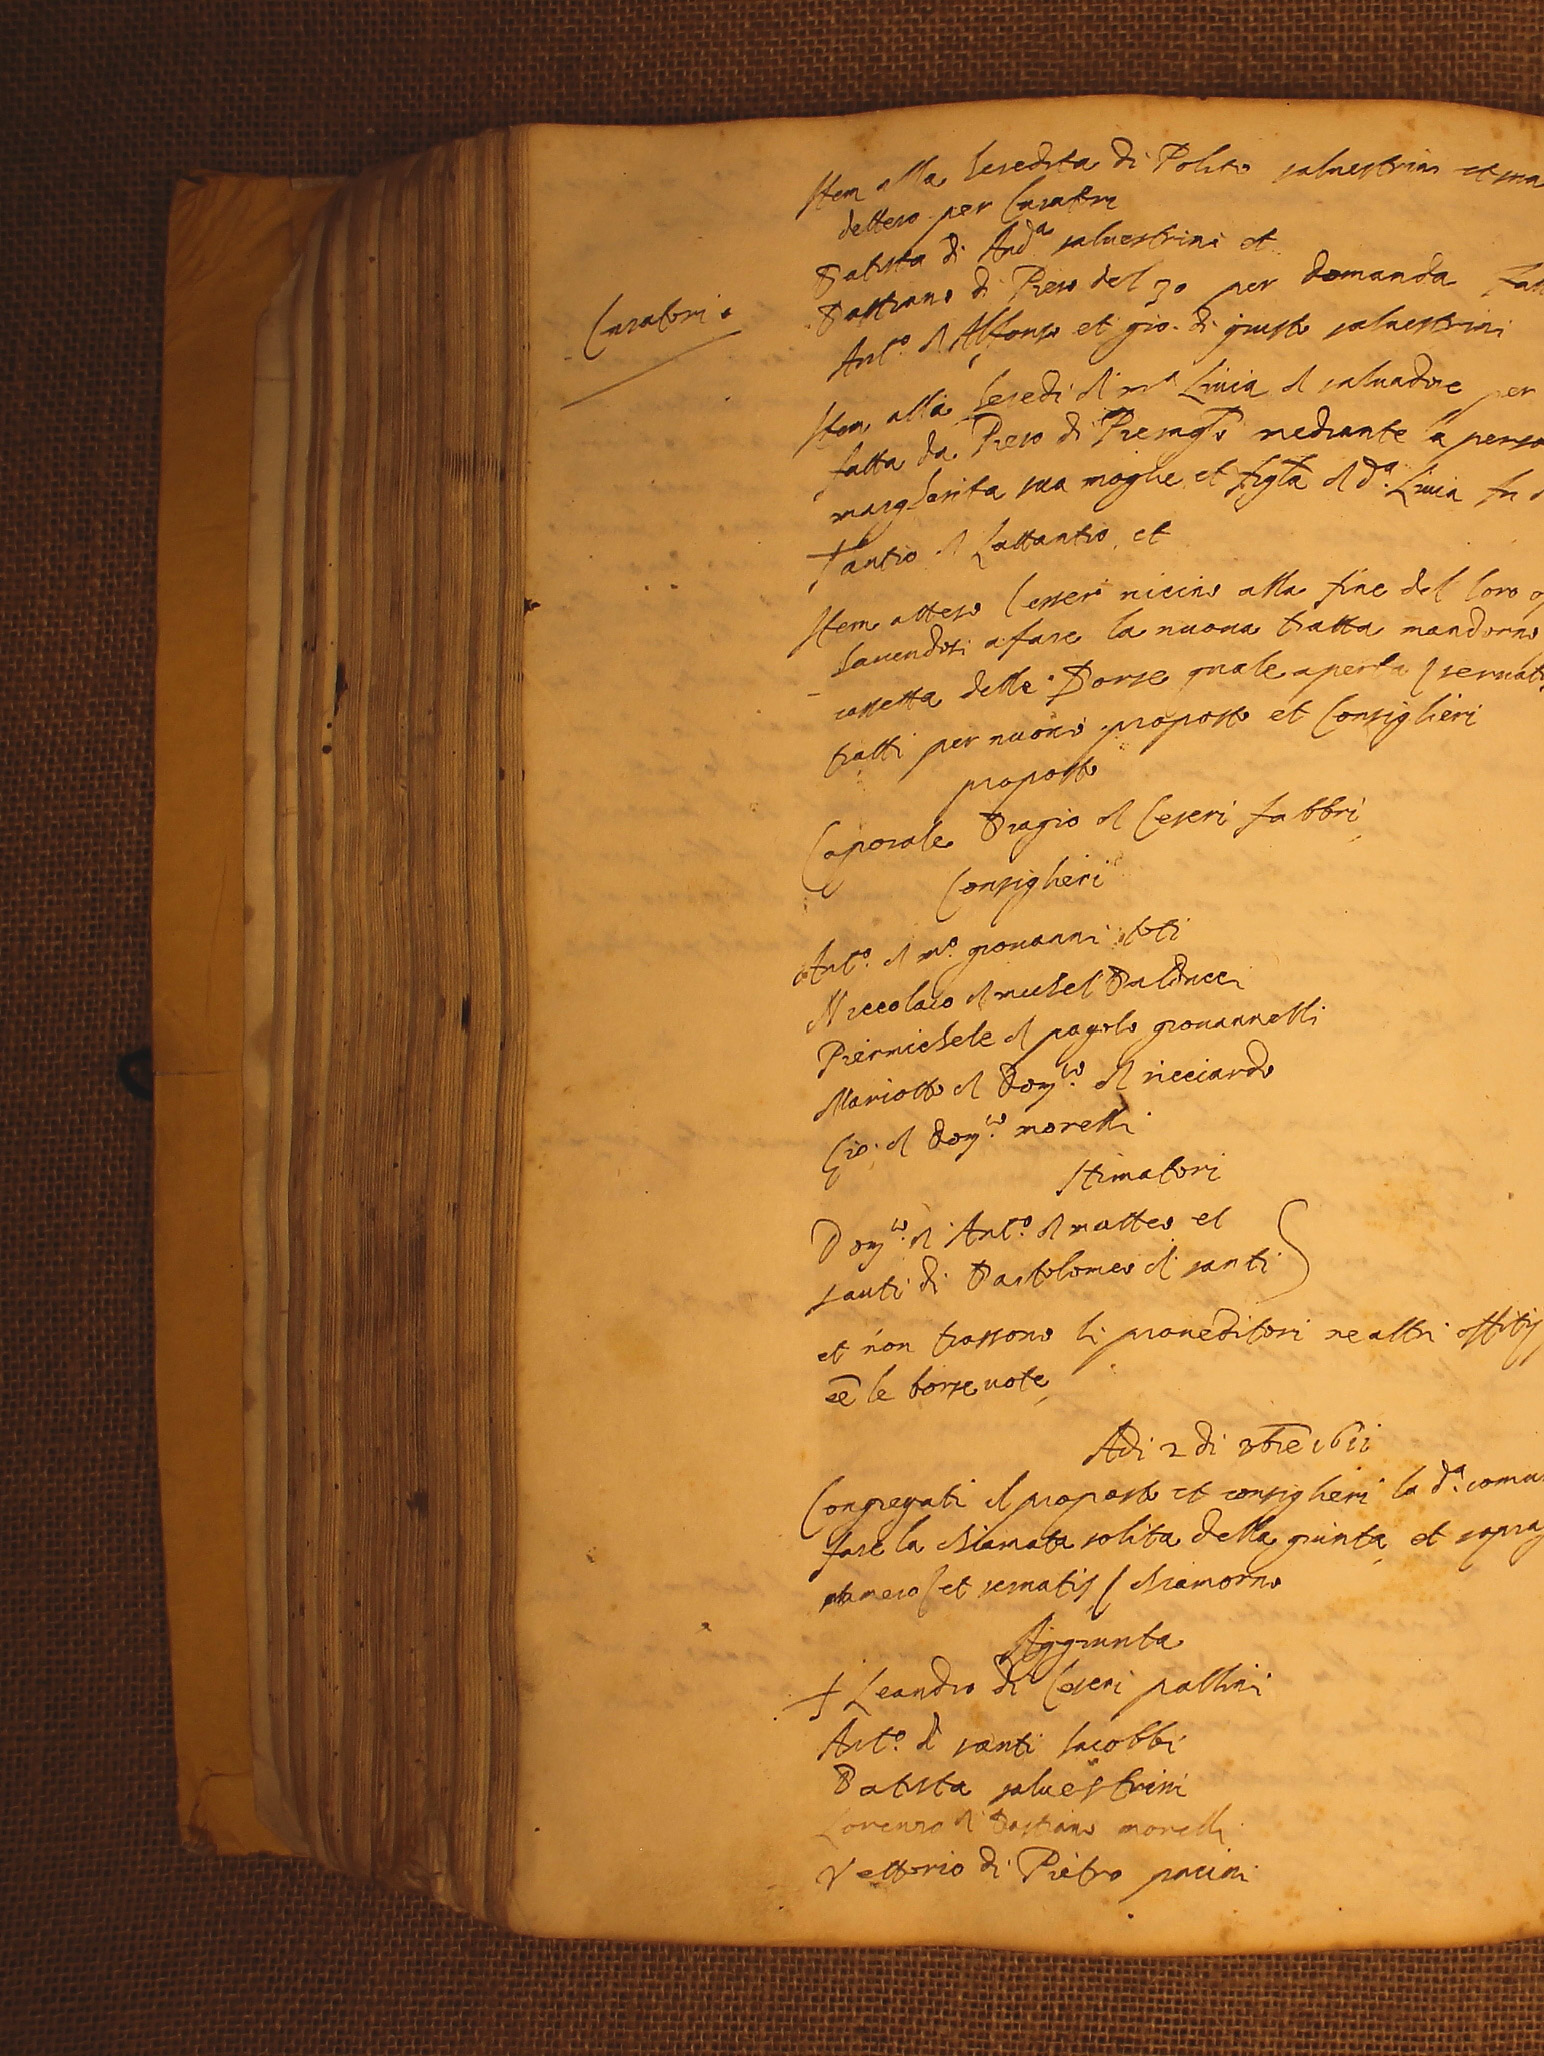 Item alla heredita di Polito saluestrini et
dettero per Curatori
Batista di And.a saluestrini et
Bastiano di Piero del 30 per domanda
Curatori
Ant.o di Alfonso et gio. di giusto saluestrini
Item alla heredi di m.a Liuia di saluadore per
fatta da Piero di mediante la
margherita sua moglie et figla di d.a Liuia fu
Santio di Lattantio et
Item atteso esser uicino alla fine del loro
hauendosi a fare la nuoua tratta mandorno
cassetta delle Borse quale aperta (
tratti per nuoui proposto et Consiglieri
proposto
Caporale Biagio di Ceseri fabbri
Consiglieri
Ant.o di m.o giouanni
Niccolaio di michel Balducci
Piermichele di pagolo giouannelli
Mariotto di Dom.co di ricciardo
Gio. di Dom.co morelli
Stimatori
Dom.co di Ant.o di matteo et
santi di Bartolomeo di santi
et non trassono li proueditori ne altri offitij
le borse uote
Adi 2 di 1611
Congregati il proposto et consiglieri la d.a
fare la chiamata solita della giunta et
numero (et seruatis ( chiamorno
Aggiunta
+ Leandro di Ceseri pallini
Ant.o di santi Iacobbi
Batista saluestrini
Lorenzo di Bastiano morelli
Vettorio di Pietro pacini